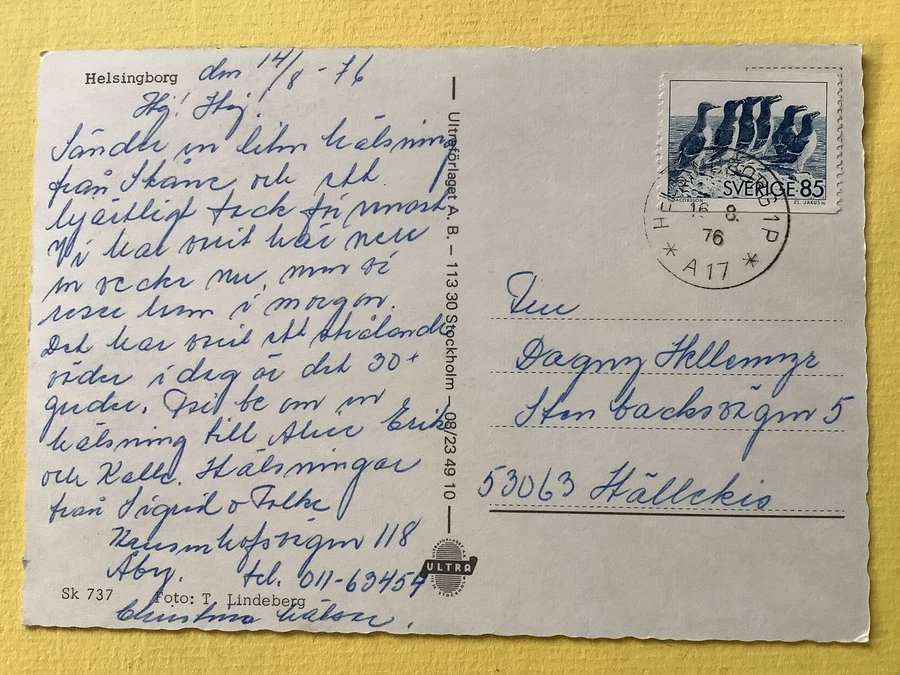 Helsingborg den 14/8 - 76
Hej! Hej!
Sänder en liten hälsning
från Skåne och ett
hjärtligt tack för
Vi har varit här nere
en vecka nu, men vi
reser hem i morgon.
Det har varit ett strålande
väder i dag är det 30+
grader. Får be om en
hälsning till Alice Erik
och Kalle. Hälsningar
från Sigrid o Folke
118
Åby. tel. 011-63454
Christina hälsar.
Sk 737 Foto: T. Lindeberg
Ultraförlaget A. B. – 113 30 Stockholm – 08/23 49 10
ULTRA
SVERIGE 85
16 8
76
* A 17 *
Fru
Dagny Hellemyr
Stenbacksvägen 5
53063 Hällekis